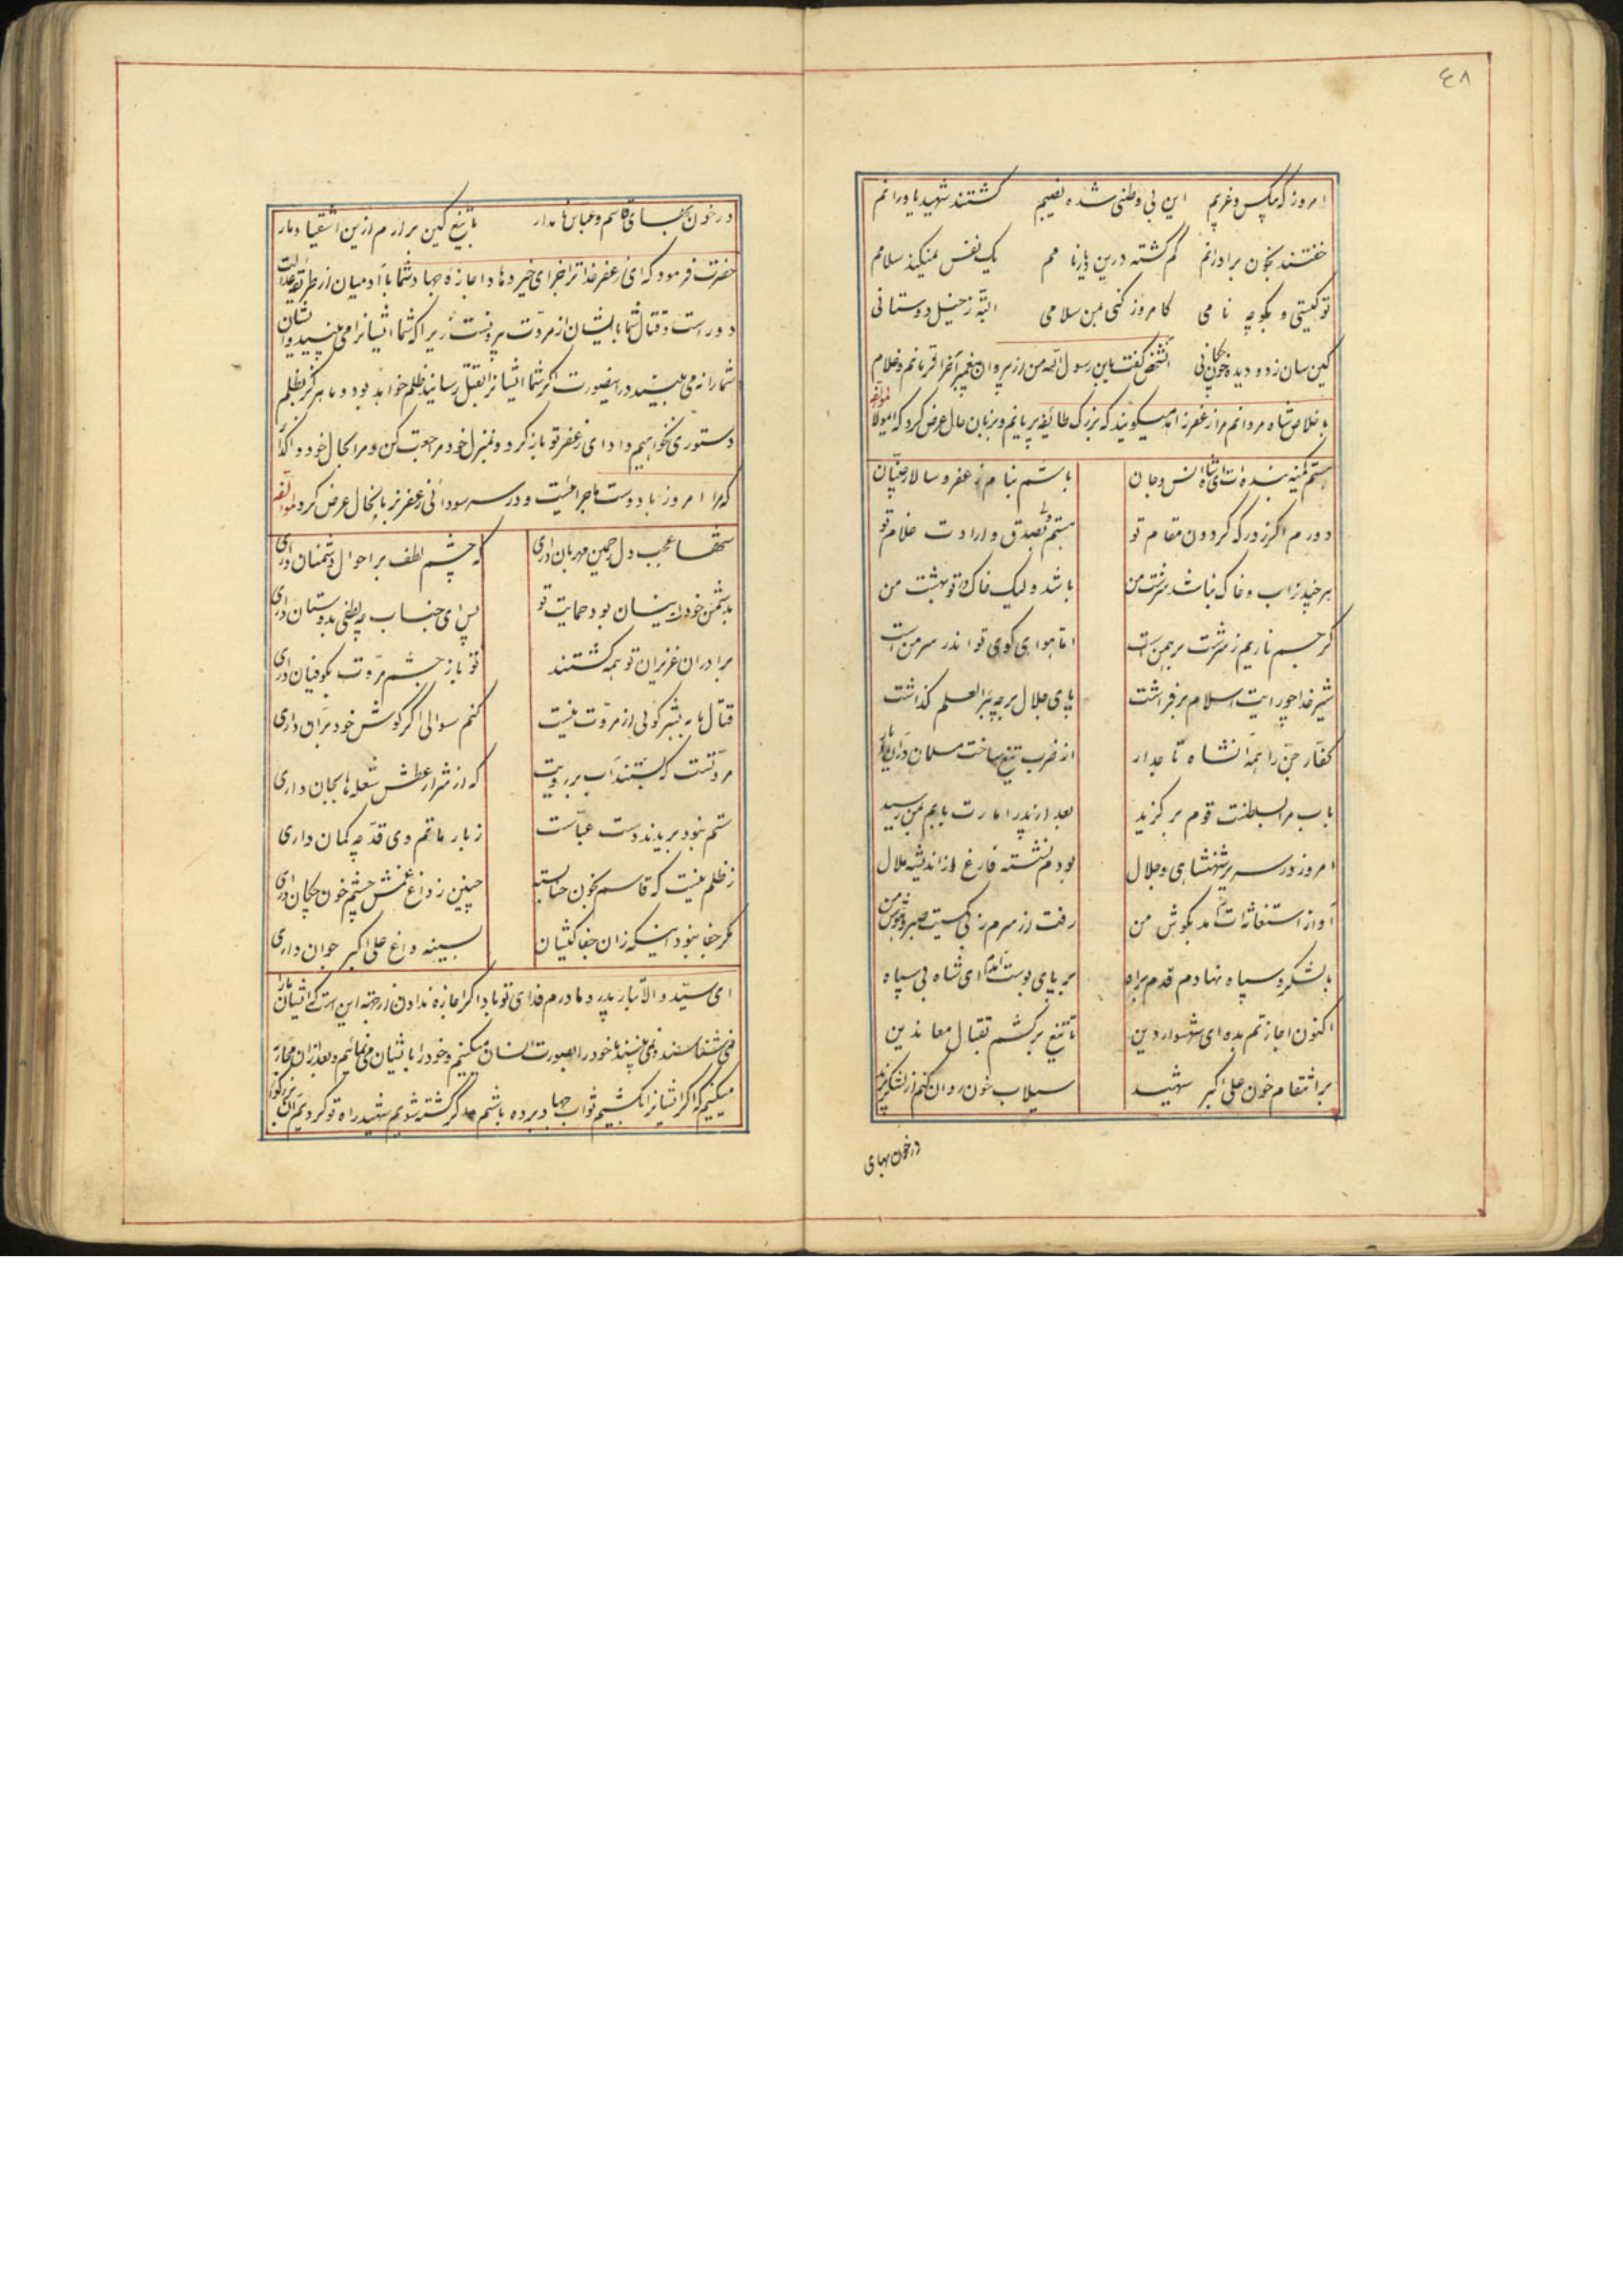 ٤٨
امروز که بیکس و غریبم این بی وطنی شده نصیبم کشتند شهید یاورانم
خفتند بخون برادرانم کم گشته درین دیار نامم یک نفس نمیکند سلامم
تو کیستی و بگو چه نامی کامروز کنی بمن سلامی البته ز خیل دوستانی
کین سان ز دو دیده خون چکانی آنشخص گفت یابن رسول الله من از پیروان پیغمبر آخر الزمانم و غلام
با خلاص شاه مردانم مرا زعفر زاهد میگویند که بزرگ طائفه پریانم و بزبان حال عرض کرد که ایمولا لمؤلفه
هستم کمینه بنده ات ای شاه انس و جان باشم بنام زعفر و سالار جنیان
دورم اگر ز درگه گردون مقام تو هستم ولی بصدق و ارادت غلام تو
هر چند ز آب و خاک نباشد سرشت من باشد ولیک خاک در تو بهشت من
گر جسم ناریم ز سرشت برهمن است اما هوای کوی تو اندر سر من است
شیر خدا چو رایت اسلام بر فراشت پای جلال بر چه بئر العلم گذاشت
کفار جن را همه آنشاه تاجدار از ضرب تیغ ساخت مسلمان در آن دیار
باب مرا بسلطنت قوم بر گزید بعد از پدر امارت بابم بمن رسید
امروز در سریر شهنشاهی و جلال بودم نشسته فارغ از اندیشه ملال
آواز استغاثه ات آمد بگوش من رفت از سرم ز بی کسیت صبر و هوش من
با لشکر و سپاه نهادم قدم براه بر پای بوست آمدم ای شاه بی سپاه
اکنون اجازتم بده ای شهسوار دین تا تیغ برکشم بقتال معاندین
بر انتقام خون علی اکبر شهید سیلاب خون روان کنم از لشکر یزید
در خون بهای
در خون بهای قاسم و عباس نامدار با تیغ کین برارم ازین اشقیا دمار
حضرت فرمود که ای زعفر خدا ترا جزای خیر دهاد اجازه جهاد شما با آدمیان از طریقه عدالت
دور است و قتال شما با ایشان از مروت بیرونست زیرا که شما ایشانرا می بینید و ایشان
شما را نمی بینند در اینصورت اگر شما ایشانرا بقتل رسانید ظلم خواهد بود و ما هرگز بظلم
دستوری نخواهیم داد ای زعفر تو باز گرد و بمنزل خود مراجعت کن و مرا بحال خود واگذار
که مرا امروز با دوست ماجرائیست و در سر سودائی زعفر بزبانحال عرض کرد لمؤلفه
شها عجب دل رحمین مهربان داری که چشم لطف بر احوال دشمنان داری
بدشمن خود اینسان بود حمایت تو پس ای جناب چه لطفی بدوستان داری
برادران عزیزان تو همه کشتند تو باز چشم مروت بکوفیان داری
قتال ما به بشر گوئی از مروت نیست کنم سوالی اگر گوش خود بر آن داری
مروتست که بستند آب بر رویت که از شرار عطش شعله ها بجان داری
ستم نبود بریدند دست عباست ز بار ماتم وی قد چه کمان داری
ز ظلم نیست که قاسم بخون حنا بسته چنین ز داغ غمش چشم خون چکان داری
مگر جفا نبود اینکه زان جفا کیشان بسینه داغ علی اکبر جوان داری
ای سید والاتبار پدر و مادرم فدای تو باد اگر اجازه ندادن از جهة این است که ایشان ما را
نمی شناسند و نمی بینند ما خود را بصورت انسان میکنیم و خود را بایشان می نمائیم و بعد از آن محاربه
میکنیم که اگر ایشانرا بکشیم ثواب جهاد برده باشیم و اگر کشته شویم شهید راه تو گردیم آن بزرگوار